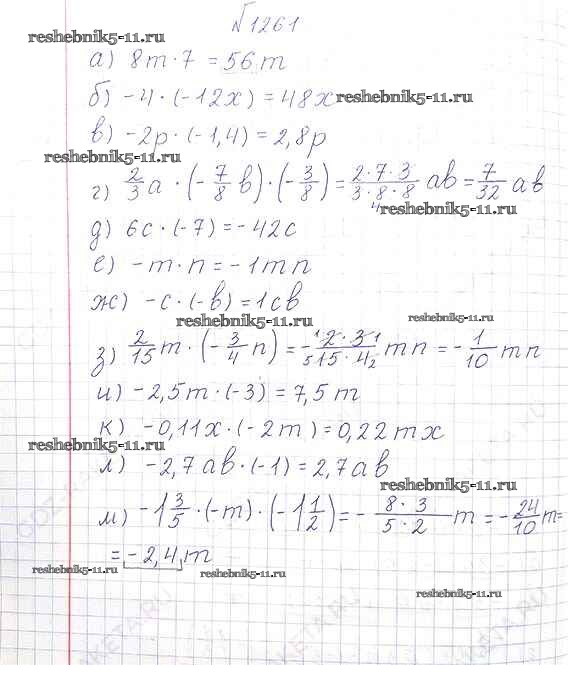 №1261
reshebnik5-11.ru
а) 8m·7 = 56m
б) -4·(-12x) = 48x reshebnik5-11.ru
в) -2p·(-1,4) = 2,8p
reshebnik5-11.ru
г) 2/3 a·(-7/8 b)·(-3/8) = 2·7·3/3·8·8 4 ab = 7/32 ab
reshebnik5-11.ru
д) 6c·(-7) = -42c
е) -m·n = -1mn
ж) -c·(-b) = 1cb reshebnik5-11.ru
reshebnik5-11.ru
з) 2/15 m·(-3/4 n) = - 1 2·3 1/5 15·4 2 mn = -1/10 mn
и) -2,5m·(-3) = 7,5m
к) -0,11x·(-2m) = 0,22mx
reshebnik5-11.ru
л) -2,7ab·(-1) = 2,7ab
reshebnik5-11.ru
м) -1 3/5·(-m)·(-1 1/2) = - 8·3/5·2 m = -24/10 m =
= -2,4m
reshebnik5-11.ru reshebnik5-11.ru
reshebnik5-11.ru